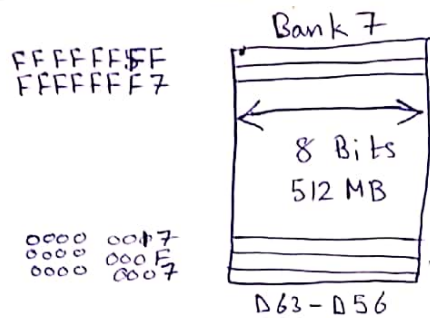 Bank 7
FFFFFFFF
FFFFFFF7
8 Bits
512 MB
0000 0017
0000 000F
0000 0007
D63-D56